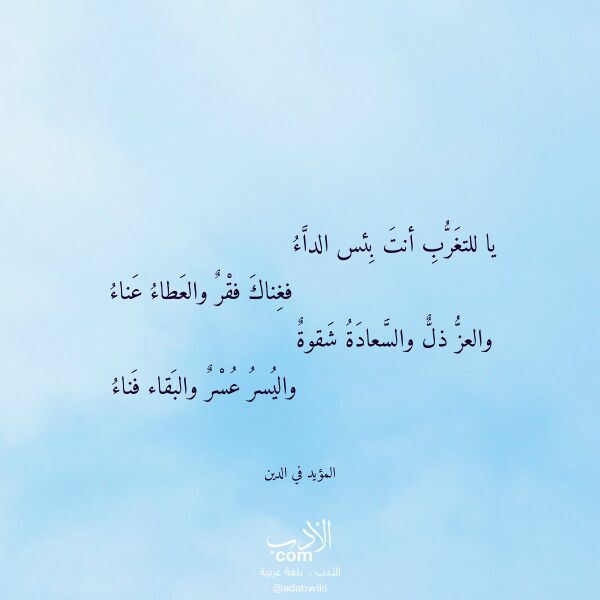 يا للتغَرُّبِ أنتَ بِئس الداَّءُ
فغِناكَ فقْرٌ والعَطاءُ عَناءُ
والعزُّ ذلٌّ والسَّعادَةُ شَقوةٌ
واليُسرُ عُسْرٌ والبَقاء فَناءُ
المؤيد في الدين
الأدب
.com
الأدب .. بلغة عربية
@adabwiki